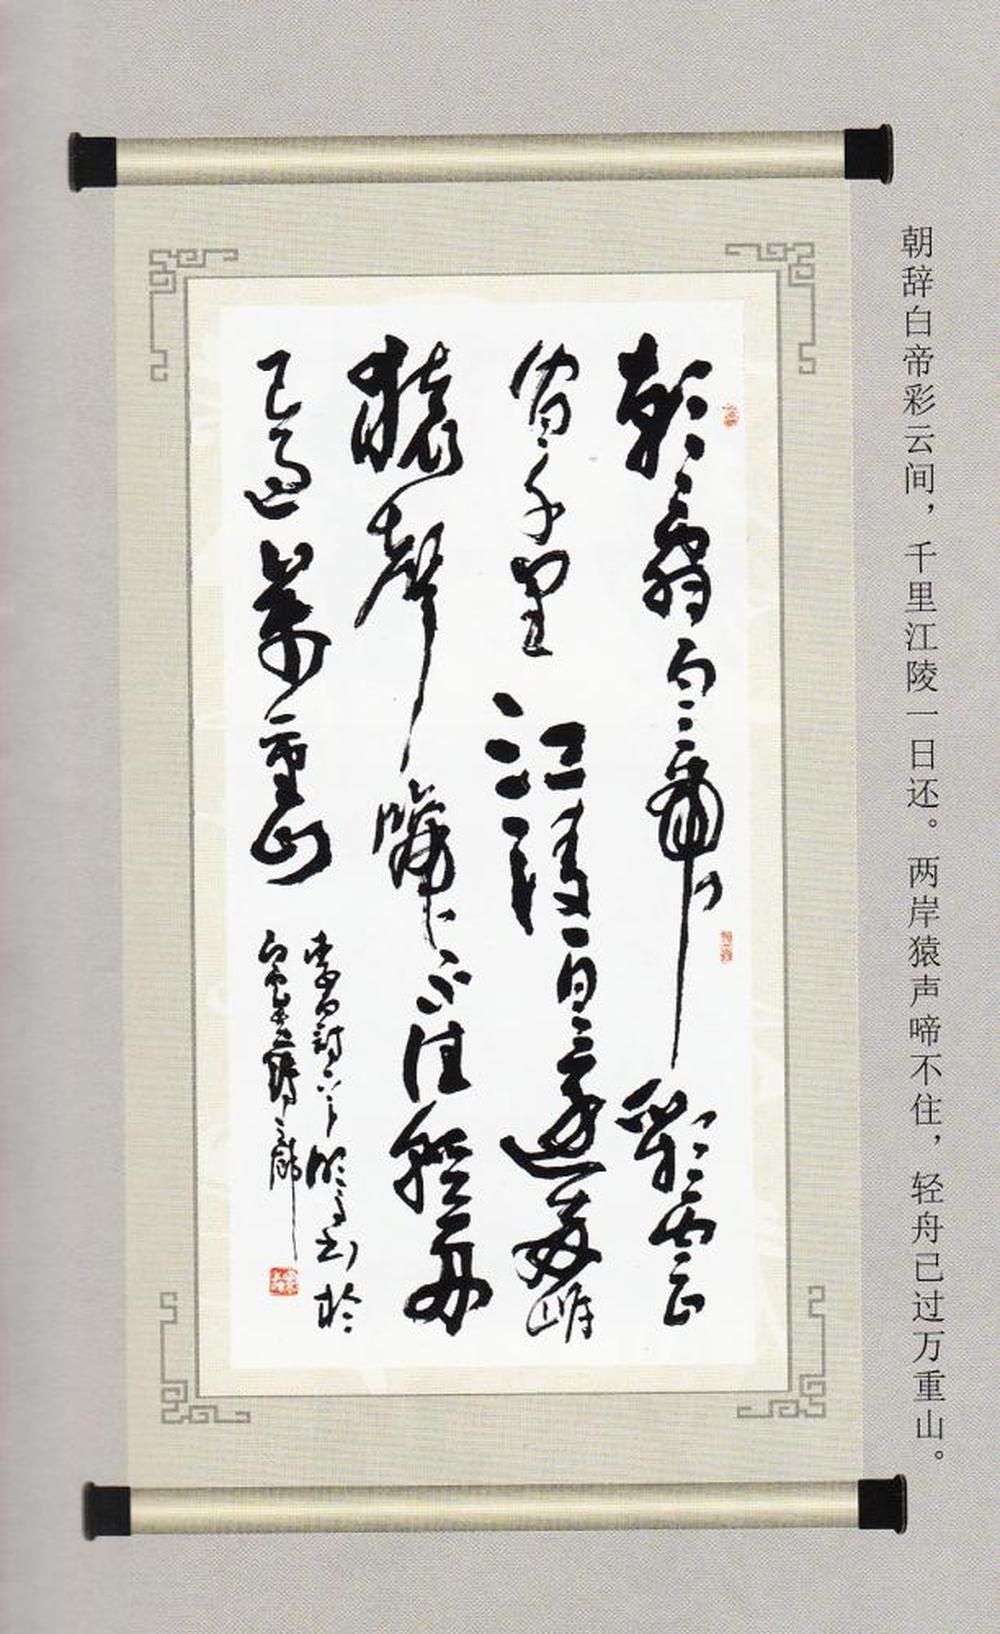 朝辞白帝彩云间，千里江陵一日还。两岸猿声啼不住，轻舟已过万重山。
朝辭白帝彩雲
間千里江陵一日還两岸
猿聲啼不住輕舟
已過萬重山
李白詩一首